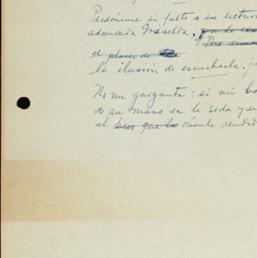 Perdóneme si falto a su lectura
adorada Griselda,
¿Pero
el placer de
la ilusión de escucharla, j
No mi garganta: si mi bo
de su mano en la seda y en
el beso que lo vínculo rendid